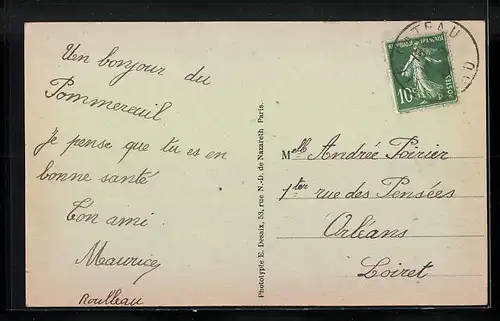 Un bonjour du
Pommereuil
Je pense que tu es en
bonne santé
Ton ami
Maurice
Roulleau
Phototypie E. Desaix, 53, rue N.-D. de Nazareth Paris.
10c
POSTES
TEAU
Melle Andrée Poirier
1ter rue des Pensées
Orléans
Loiret